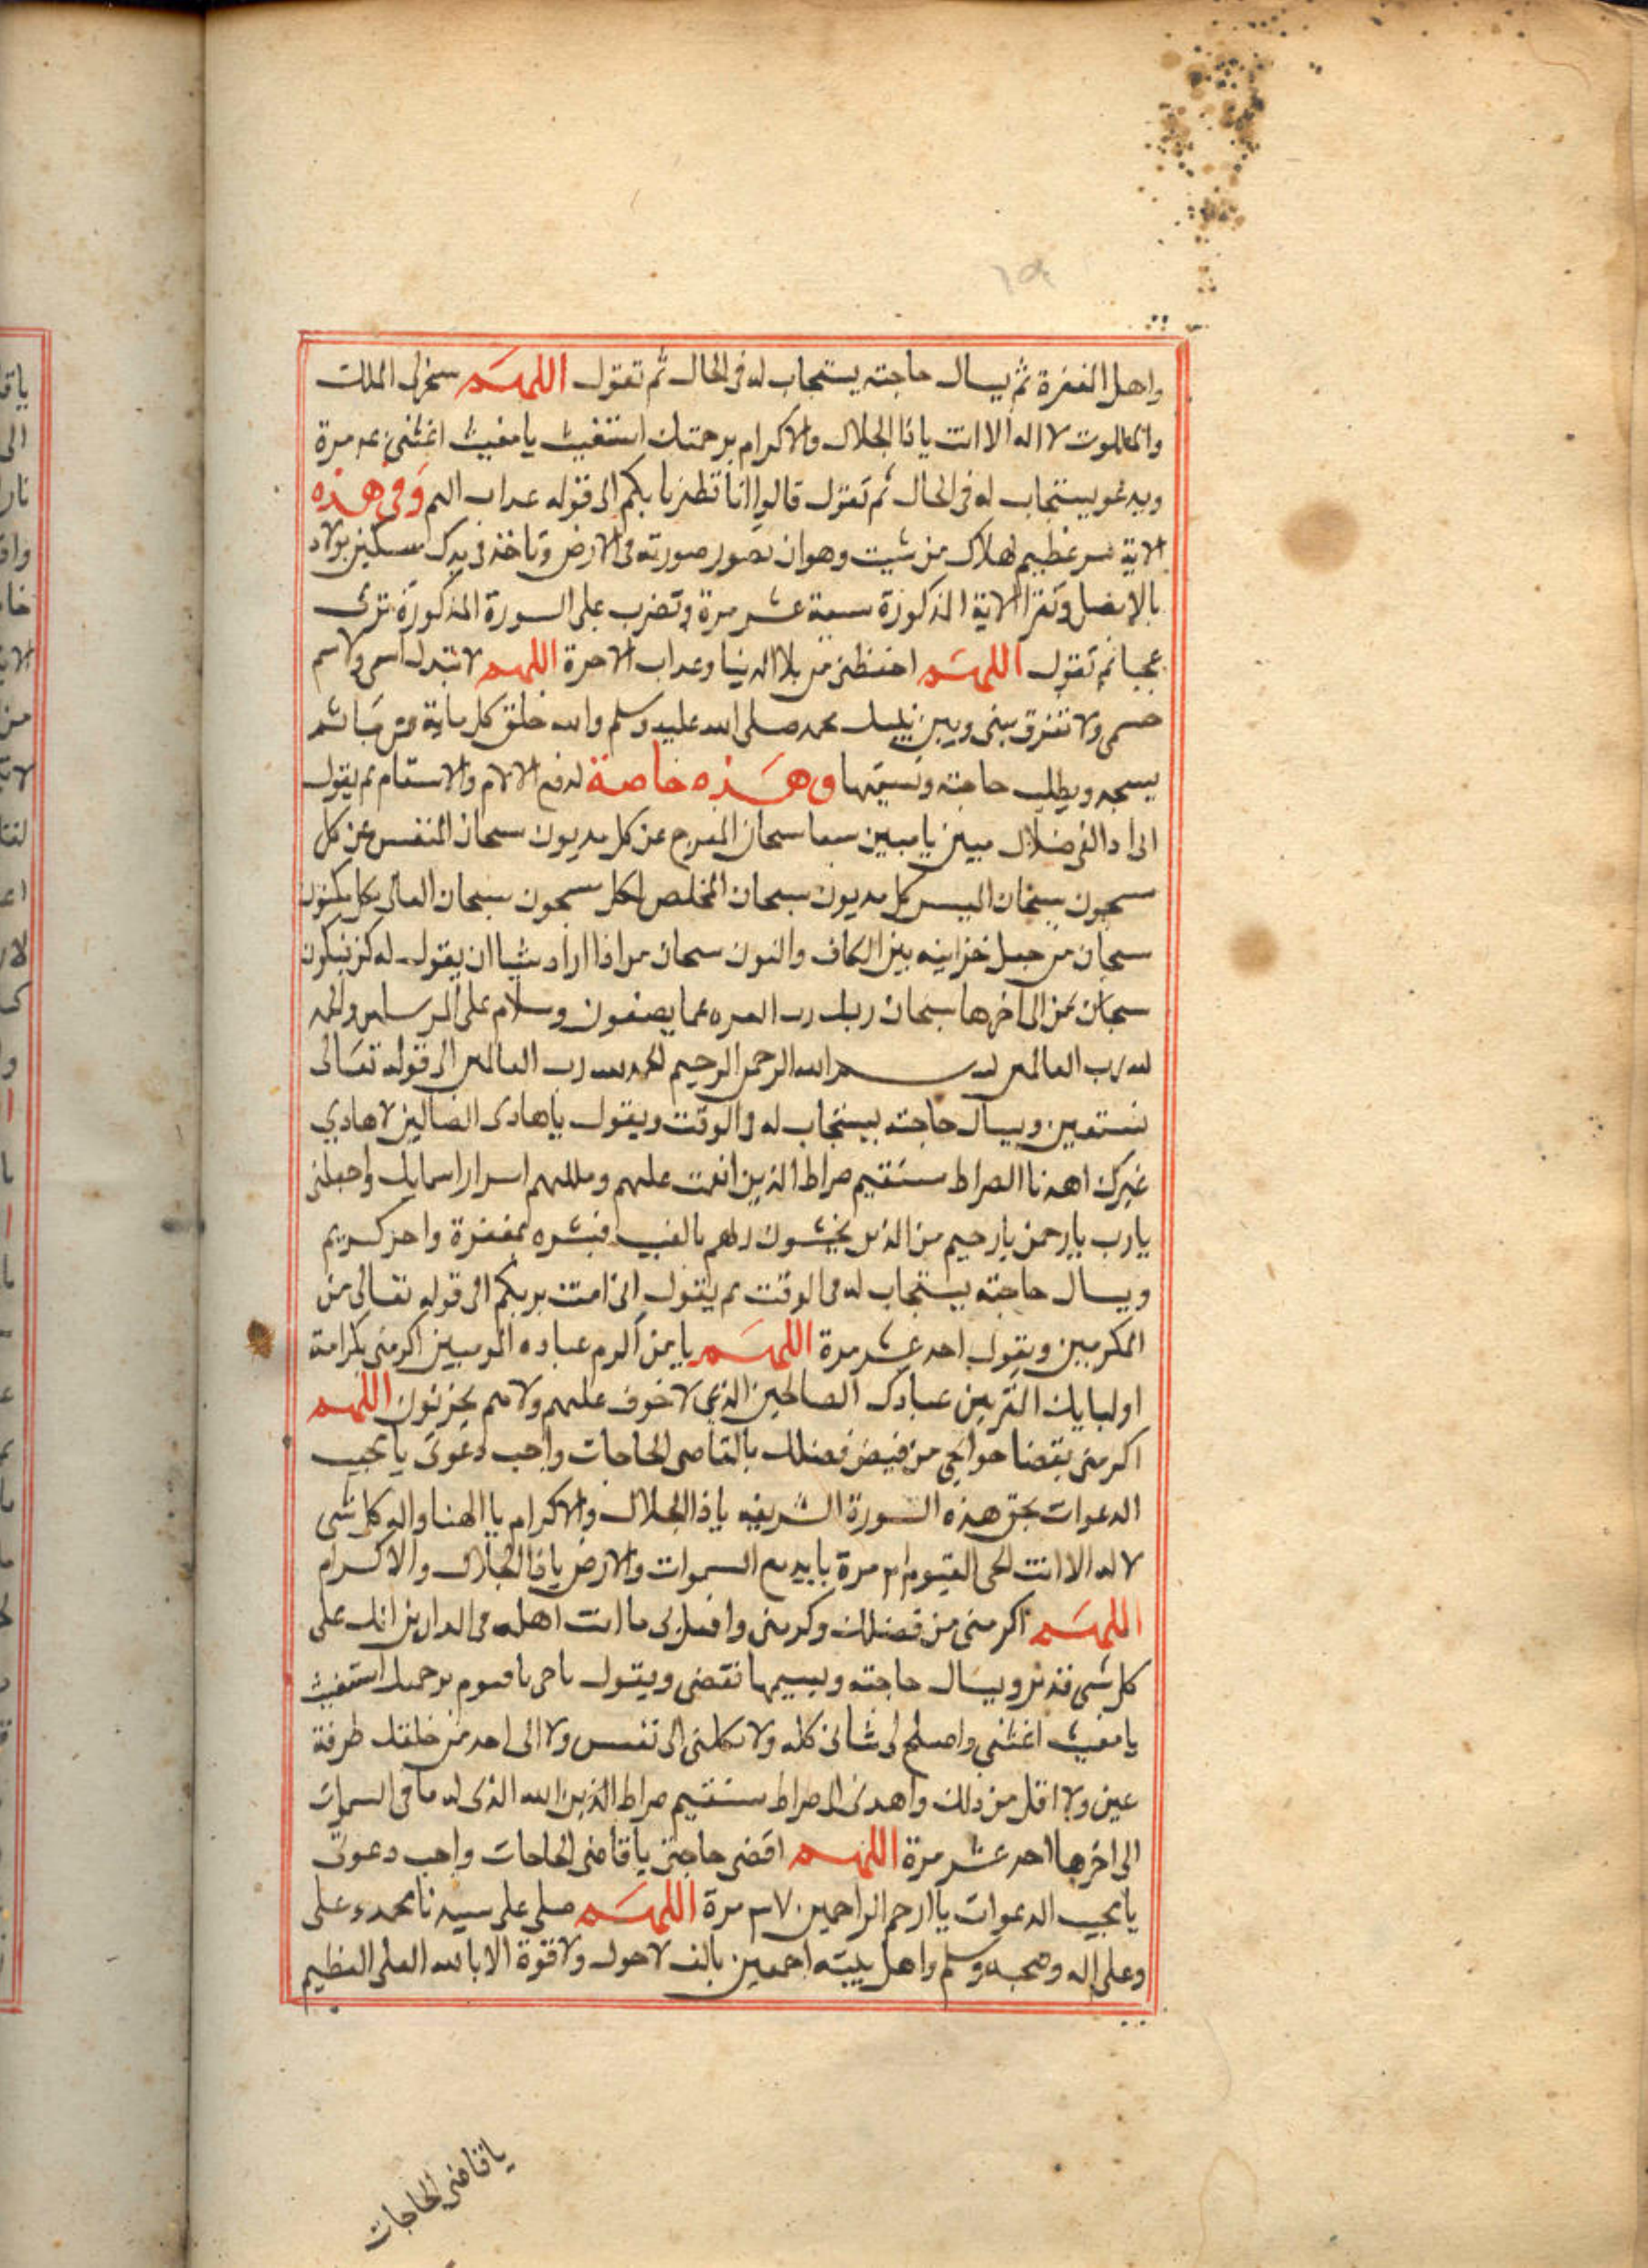 واهل المغفرة ثم يسال حاجته يستجاب له فى الحال ثم تقول اللهم سخرلى الملك
والملكوت لا اله الا انت ياذا الجلال والاكرام برحمتك استغيث يا مغيث اغثنى مرة
ويدعو يستجاب له فى الحال ثم تقول قالوا انا تطيرنا بكم الى قوله عداب اليم وفى هذه
الاية سر عظيم لهلاك من شيت وهو ان تصور صورته فى الارض وتاخذ فى يدك سكين بولاد
وتقرا الاية المذكورة سبعة عشر مرة وتضرب على السورة المذكورة ترى
عجبا ثم تقول اللهم احفظنى من بلا الدنيا وعداب الاخرة اللهم لا تبدل اسمى ولا سم
جسمى ولا تفرق بينى وبين نبيك محمد صلى الله عليه وسلم والله خلق كل دابة من ما ثم
يسجد ويطلب حاجته وتسميها وهذه خاصة لدفع الالام والاسقام ثم يقول
انى اذا لفى ضلال مبين يا مبين سبعا سبحان المفرج عن كل مديون سبحان المنفس عن كل
سجون سبحان الميسر كل مديون سبحان المخلص لكل سجون سبحان العالم بكل مكنون
سبحان من جعل خزاينه بين الكاف والنون سبحان من اذا اراد شيا ان يقول له كن فيكون
سبحان من الى اخرها سبحان ربك رب العزه عما يصفون وسلام على المرسلين والحمد
لله رب العالمين بسم الله الرحمن الرحيم الحمد لله رب العالمين الى قوله تعالى
نستعين ويسال حاجته يستجاب له فى الوقت ويقول يا هادى الضالين لا هادي
غيرك اهدنا الصراط مستقيم صراط الذين انعمت عليهم وملكهم اسرار اسمايك واجعلنى
يارب يارحمن يارحيم من الذين يخشون ربهم بالغيب فبشره بمغفرة واجر كريم
ويسال حاجته يستجاب له فى الوقت ثم يقول انى امنت بربكم الى قوله تعالى من
المكرمين ويقول احد عشر مرة اللهم يا من اكرم عباده المومنين اكرمنى بكرامة
اوليايك المقربين عبادك الصالحين الذي لا خوف عليهم ولا هم يحزنون اللهم
اكرمنى بقضا حوايجى من فيض فضلك يا قاضى الحاجات واجب دعوتى يا مجيب
الدعوات بحق هذه السورة الشريفه ياذا الجلال والاكرام يا الهنا واله كل شى
لا اله الا انت الحى القيوم مرة يا بديع السموات والارض ياذا الجلال والاكرام
اللهم اكرمنى من فضلك وكرمنى وافعل بى ما انت اهله فى الدارين انك على
كل شى قدير ويسال حاجته ويسميها تقضى ويقول ياحى ياقيوم برحمتك استغيث
يا مغيث اغثنى واصلح لى شانى كله ولا تكلنى الى نفسى ولا الى احد من خلقك طرفة
عين ولا اقل من ذلك واهدنى الى صراط مستقيم صراط الذين الله الذى له ما فى السموات
الى اخرها احد عشر مرة اللهم اقضى حاجتى يا قاضى الحاجات واجب دعوتى
يا مجيب الدعوات يا ارحم الراحمين مرة اللهم صلى على سيدنا محمد وعلى
وعلى اله وصحبه وسلم واهل بيته اجمعين بالف لا حول ولا قوة الا بالله العلى العظيم
يا قاضى الحاجات